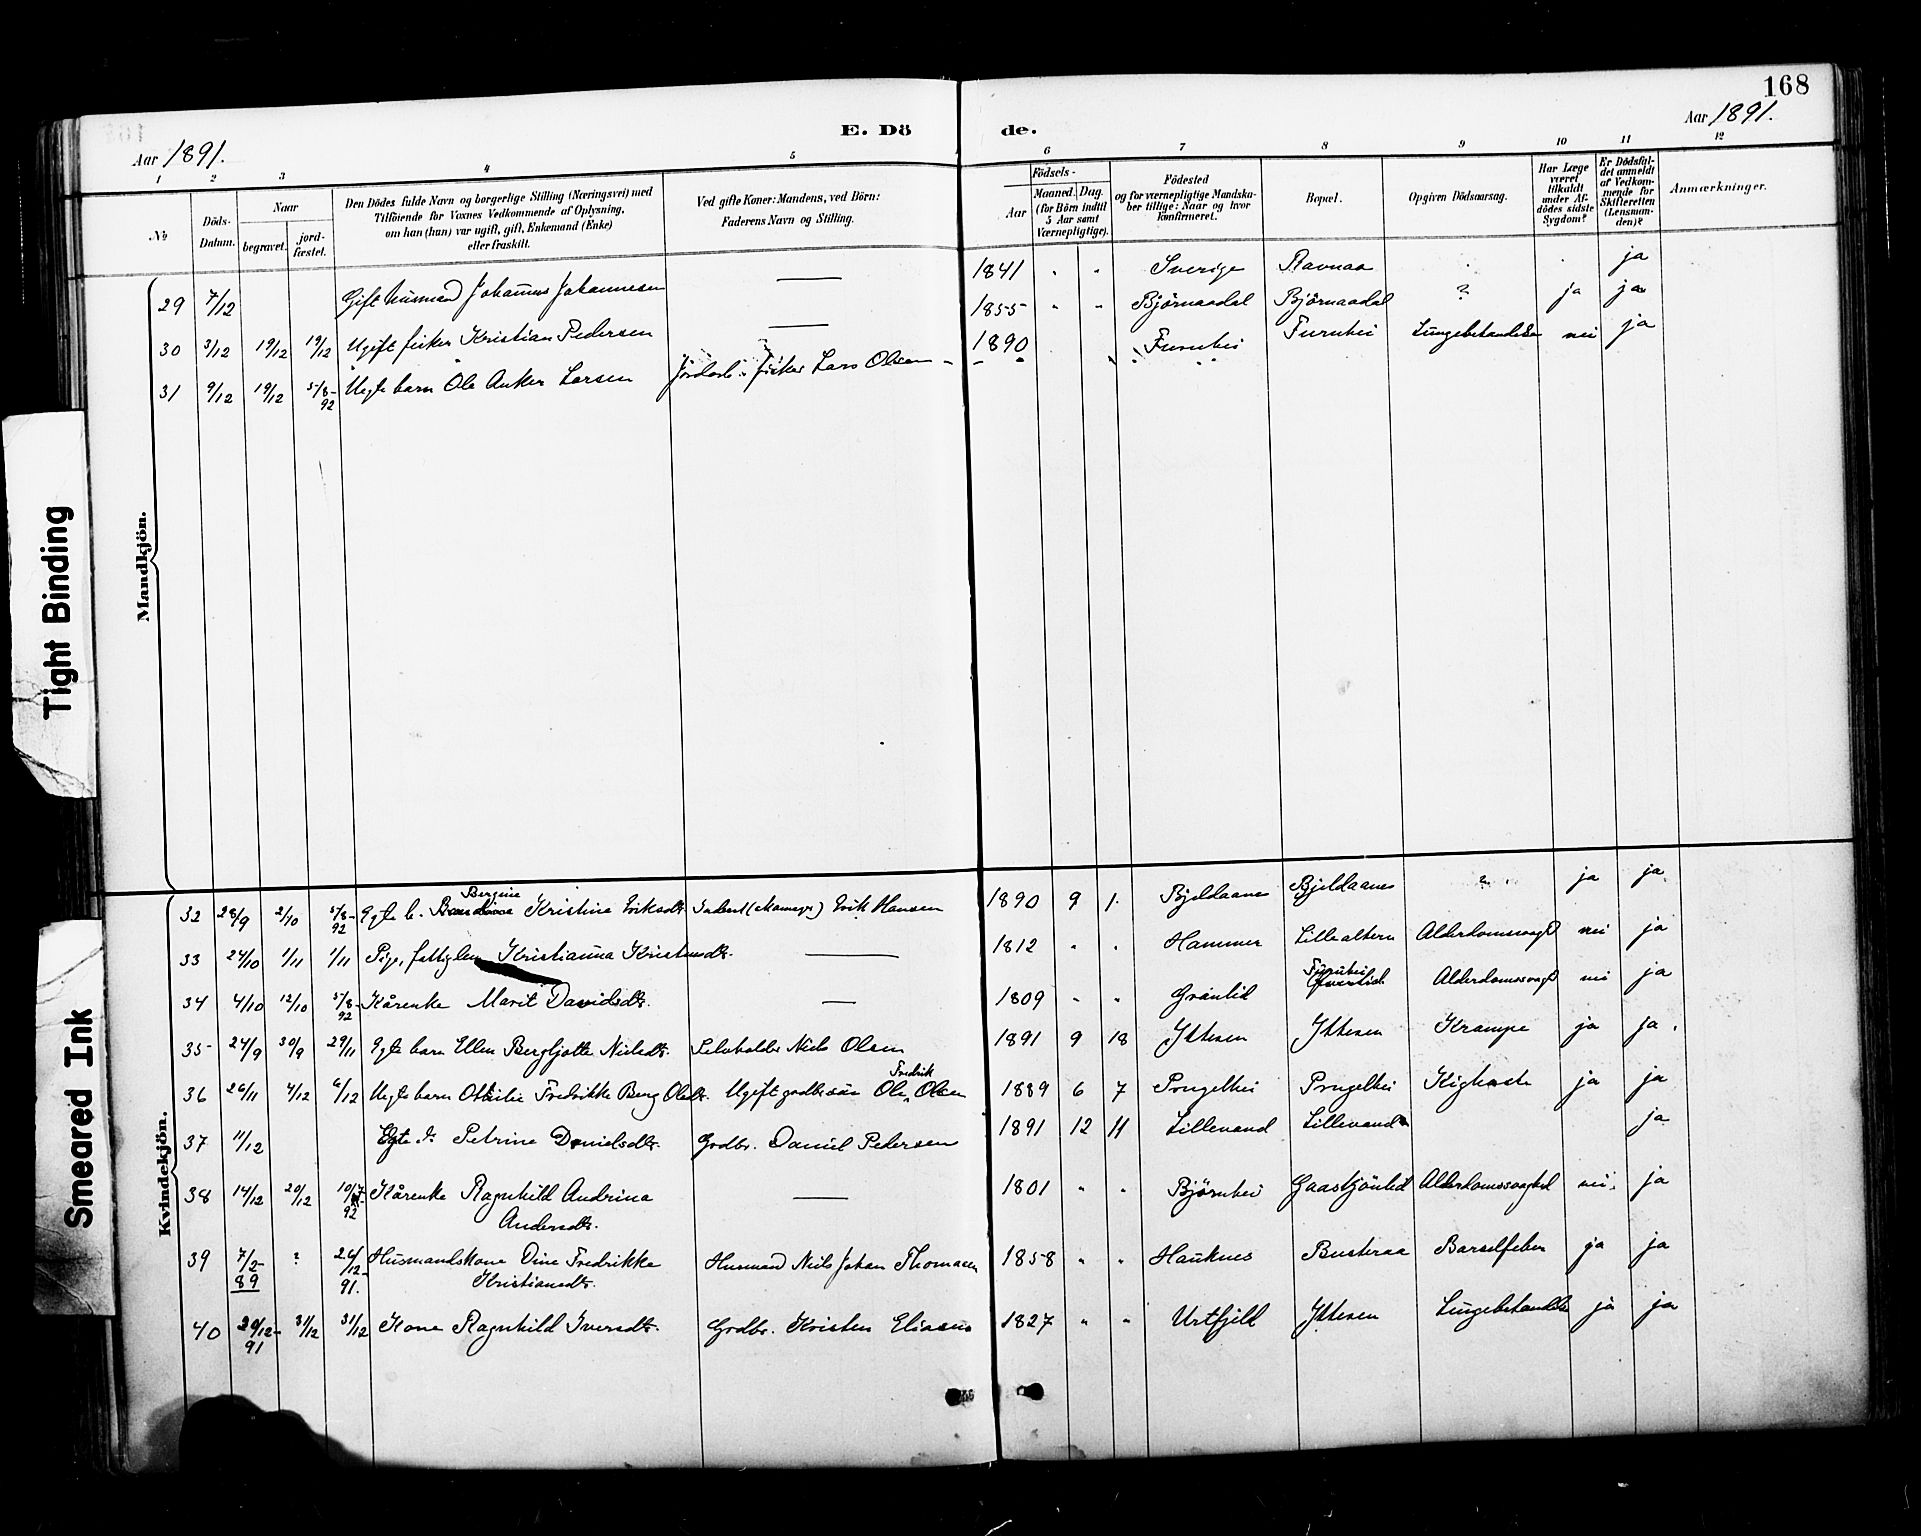 168
Aar 1891.
E. Dö de.
Aar 1891.
1 2 3 4 5 6 7 8 9 10 11 12
No
Döds-Datum.
Naar
begravet.
jord-fæstet.
Den Dödes fulde Navn og borgerlige Stilling (Næringsvei) med
Tilföiende for Voxnes Vedkommende af Oplysning,
om han (hun) var ugift, gift, Enkemand (Enke)
eller fraskilt.
Ved gifte Koner: Mandens, ved Börn:
Faderens Navn og Stilling.
Födsels-
Aar
Maaned. Dag.
(for Börn indtil
5 Aar samt
Værnepligtige).
Födested
og for værnepligtige Mandska-
ber tillige: Naar og hvor
konfirmeret.
Bopæl.
Opgiven Dödsaarsag.
Har Læge
været
tilkaldt
under Af-
dödes sidste
Sygdom?
Er Dödsfal-
det anmeldt
af Vedkom-
mende for
Skifteretten
(Lensman-
den)?
Anmærkninger.
Mandkjön.
29 7/12 Gift husmand Johannes Johannesen — 1841 " " Sverige Ravnaa ja
30 3/12 19/12 19/12 Ugift fisker Kristian Pedersen — 1855 " " Björnaadal Björnaadal ? ja ja
31 9/12 19/12 5/8-92 Uegte barn Ole Anker Larsen fisker Lars Olsen 1890 Furuhei Furuhei Lungebetændelse nei ja
Tight Binding
Kvindekjön.
Bergine
32 28/9 2/10 5/8-92 Egte b. Kristine Eriksdtr. Erik Hansen 1890 9 1. Bjeldaanes Bjeldaanes ? ja ja
33 24/10 1/11 1/11 Pige, fattiglem Kristianna Kristensdtr. — 1812 " " Hammer Lillealteren Alderdomssvagd nei ja
Furuhei
34 4/10 12/10 5/8-92 Kårenke Marit Davidsdtr. — 1809 " " Grånlid Alderdomssvagd nei ja
35 24/9 30/9 29/11 Egte barn Ellen Bergljotte Nielsdtr. Selvholder Niels Olsen 1891 9 18 Ytteren Ytteren Krampe ja ja.
Fredrik
36 26/11 4/12 6/12 Uegte barn Ottilie Fredrikke Berg Olsdtr. Ugift gaardbrsøn Ole Olsen 1889 6 7 Prugelhei Prugelhei Kighoste ja ja
37 11/12 Egte d. Petrine Danielsdtr. Grdbr. Daniel Pedersen 1891 12 11 Lillevand Lillevand ja
38 14/12 20/12 10/7-92 Kårenke Ragnhild Andrina — 1801 " " Björnhei Gaastjönlid Alderdomssvaghed nei. ja
Andersdtr.
39 7/2-89 ? 26/12-91. Husmandskone Dine Fredrikke Husmand Niels Johan Thomasen 1858 " " Hauknes Busteraa Barselfeber ja ja
Kristiansdtr.
40 20/12-91 31/12 31/12 Kone Ragnhild Iversdtr. Grdbr. Kristen Eliasen 1827 " " Urtfjeld Ytteren Lungebetændelse ja ja
Smeared Ink